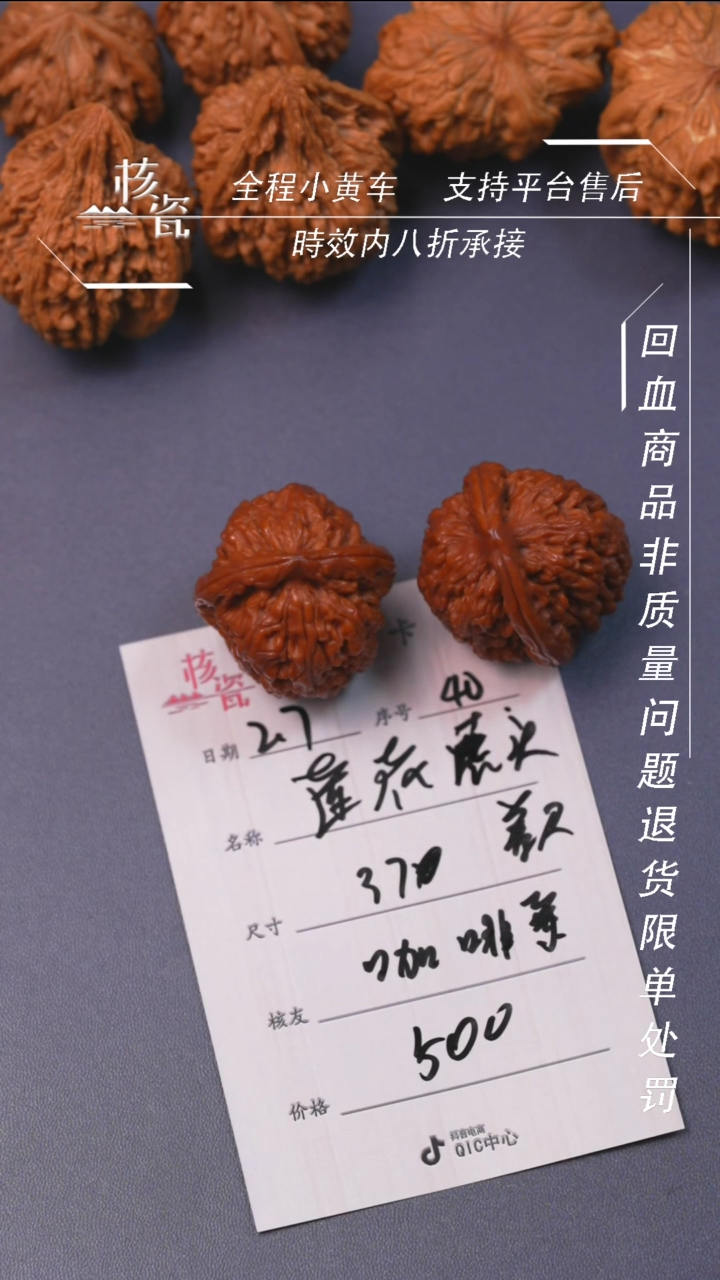 核瓷
全程小黄车 支持平台售后
時效内八折承接
回血商品非质量问题退货限单处罚
核瓷
卡
日期 2.7 序号 40
名称 莲花
尺寸 37
核友 咖啡
价格 500
抖音电商
QIC中心